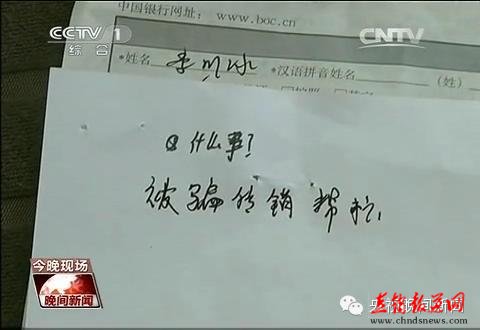 CCTV 1
综合
CNTV
中国银行网址： www.boc.cn
*姓名
*汉语拼音姓名
(姓)
什么事?
被骗传销 帮忙
今晚现场
晚间新闻
直销报道网
www.chndsnews.com